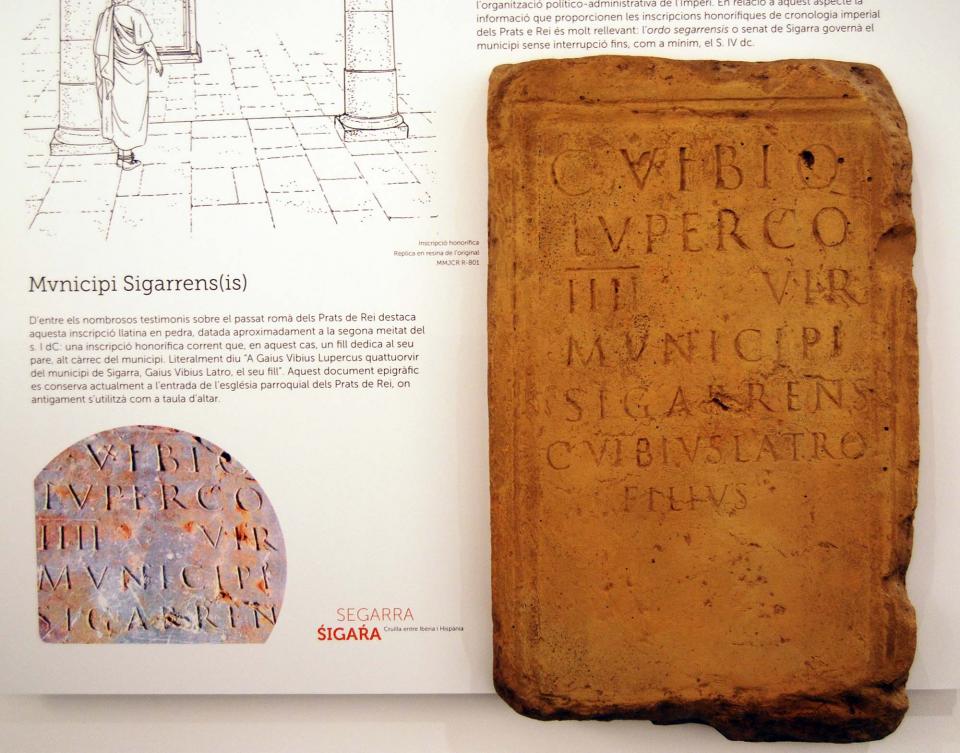 l'organització político-administrativa de l'Imperi. En relació a aquest aspecte la
informació que proporcionen les inscripcions honorífiques de cronologia imperial
dels Prats e Rei és molt rellevant: l'ordo segarrensis o senat de Sigarra governà el
municipi sense interrupció fins, com a mínim, el S. IV dc.
Inscripció honorífica
Rèplica en resina de l'original
MMJCR R-801
Mvnicipi Sigarrens(is)
D'entre els nombrosos testimonis sobre el passat romà dels Prats de Rei destaca
aquesta inscripció llatina en pedra, datada aproximadament a la segona meitat del
s. I dC: una inscripció honorífica corrent que, en aquest cas, un fill dedica al seu
pare, alt càrrec del municipi. Literalment diu "A Gaius Vibius Lupercus quattuorvir
del municipi de Sigarra, Gaius Vibius Latro, el seu fill". Aquest document epigràfic
es conserva actualment a l'entrada de l'església parroquial dels Prats de Rei, on
antigament s'utilitzà com a taula d'altar.
VIBIO
LVPERCO
IIII VIR
MVNICIPI
SIGARREN
SEGARRA
ŚIGAŔA Cruïlla entre Ibèria i Hispània
C VIBIO
LVPERCO
IIII VIR
MVNICIPI
SIGARRENS
C VIBIVS LATRO
FILIVS